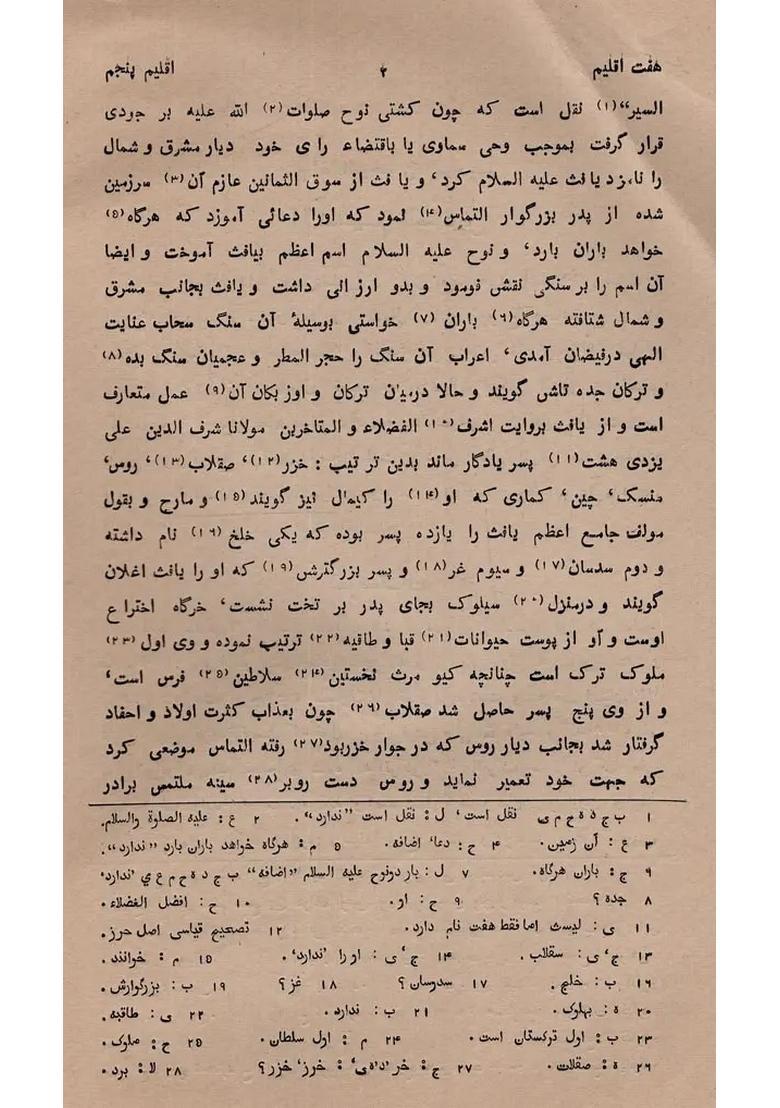 هفت اقلیم ۲ اقلیم پنجم
السیر“(۱) نقل است که چون کشتی نوح صلوات(۲) الله علیه بر جودی
قرار گرفت بموجب وحی سماوی یا باقتضاء رای خود دیار مشرق و شمال
را نامزد یافث علیه السلام کرد، و یافث از سوق الثمانین عازم آن(۳) سرزمین
شده از پدر بزرگوار التماس(۴) نمود که اورا دعائی آموزد که هرگاه(۵)
خواهد باران بارد، و نوح علیه السلام اسم اعظم بیافث آموخت و ایضا
آن اسم را بر سنگی نقش نومود و بدو ارزانی داشت و یافث بجانب مشرق
و شمال شتافته هرگاه(۶) باران (۷) خواستی بوسیلهٔ آن سنگ سحاب عنایت
الهی درفیضان آمدی، اعراب آن سنگ را حجر المطر و عجمیان سنگ بده(۸)
و ترکان جده تاش گویند و حالا درمیان ترکان و اوزبکان آن(۹) عمل متعارف
است و از یافث بروایت اشرف(۱۰) الفضلاء و المتاخرین مولانا شرف الدین علی
یزدی هشت(۱۱) پسر یادگار ماند بدین ترتیب : خزر(۱۲)، صقلاب(۱۳)، روس،
منسک، چین، کماری که او(۱۴) را کیمال نیز گویند(۱۵) و مارج و بقول
مولف جامع اعظم یافث را یازده پسر بوده که یکی خلخ (۱۶) نام داشته
و دوم سدسان(۱۷) و سیوم غر(۱۸) و پسر بزرگترش(۱۹) که او را یافث اغلان
گویند و درمنزل(۲۰) سیلوک بجای پدر بر تخت نشست، خرگاه اختراع
اوست و آو از پوست حیوانات(۲۱) قبا و طاقیه(۲۲) ترتیب نموده و وی اول(۲۳)
ملوک ترک است چنانچه کیو مرث نخستین(۲۴) سلاطین(۲۵) فرس است،
و از وی پنج پسر حاصل شد صقلاب(۲۶) چون بعذاب کثرت اولاد و احفاد
گرفتار شد بجانب دیار روس که در جوار خزربود(۲۷) رفته التماس موضعی کرد
که جهت خود تعمیر نماید و روس دست روبر(۲۸) سینه ملتمس برادر
۱ ب ج د ه ح م ی نقل است، ل : نقل است ”ندارد“. ۲ ع : علیه الصلوة والسلام.
۳ ع : آن زمین. ۴ ح : دعا، اضافه. ۵ م : هرگاه خواهد باران بارد ”ندارد“.
۶ چ : باران هرگاه. ۷ ل : بار دونوح علیه السلام ”اضافه“ ب ج د ه ح م ع ي ،ندارد،
۸ جده ؟ ۹ ح : او. ۱۰ ح : افضل الفضلاء.
۱۱ ی : لیست اما فقط هفت نام دارد. ۱۲ تصحیح قیاسی اصل حرز.
۱۳ چ، ی : سقلاب. ۱۴ چ، ی : او را ،ندارد،. ۱۵ م : خوانند.
۱۶ ب : خلج. ۱۷ سدوسان ؟ ۱۸ غز ؟ ۱۹ ب : بزرگوارش.
۲۰ ه : بهلوک. ۲۱ ب : ندارد. ۲۲ ی : طاقبه.
۲۳ ب : اول ترکستان است. ۲۴ م : اول سلطان. ۲۵ ح : ملوک.
۲۶ ه : صقلات. ۲۷ چ : خر ،د،ه،ی، : خرز، خزر ؟ ۲۸ لا : برد.